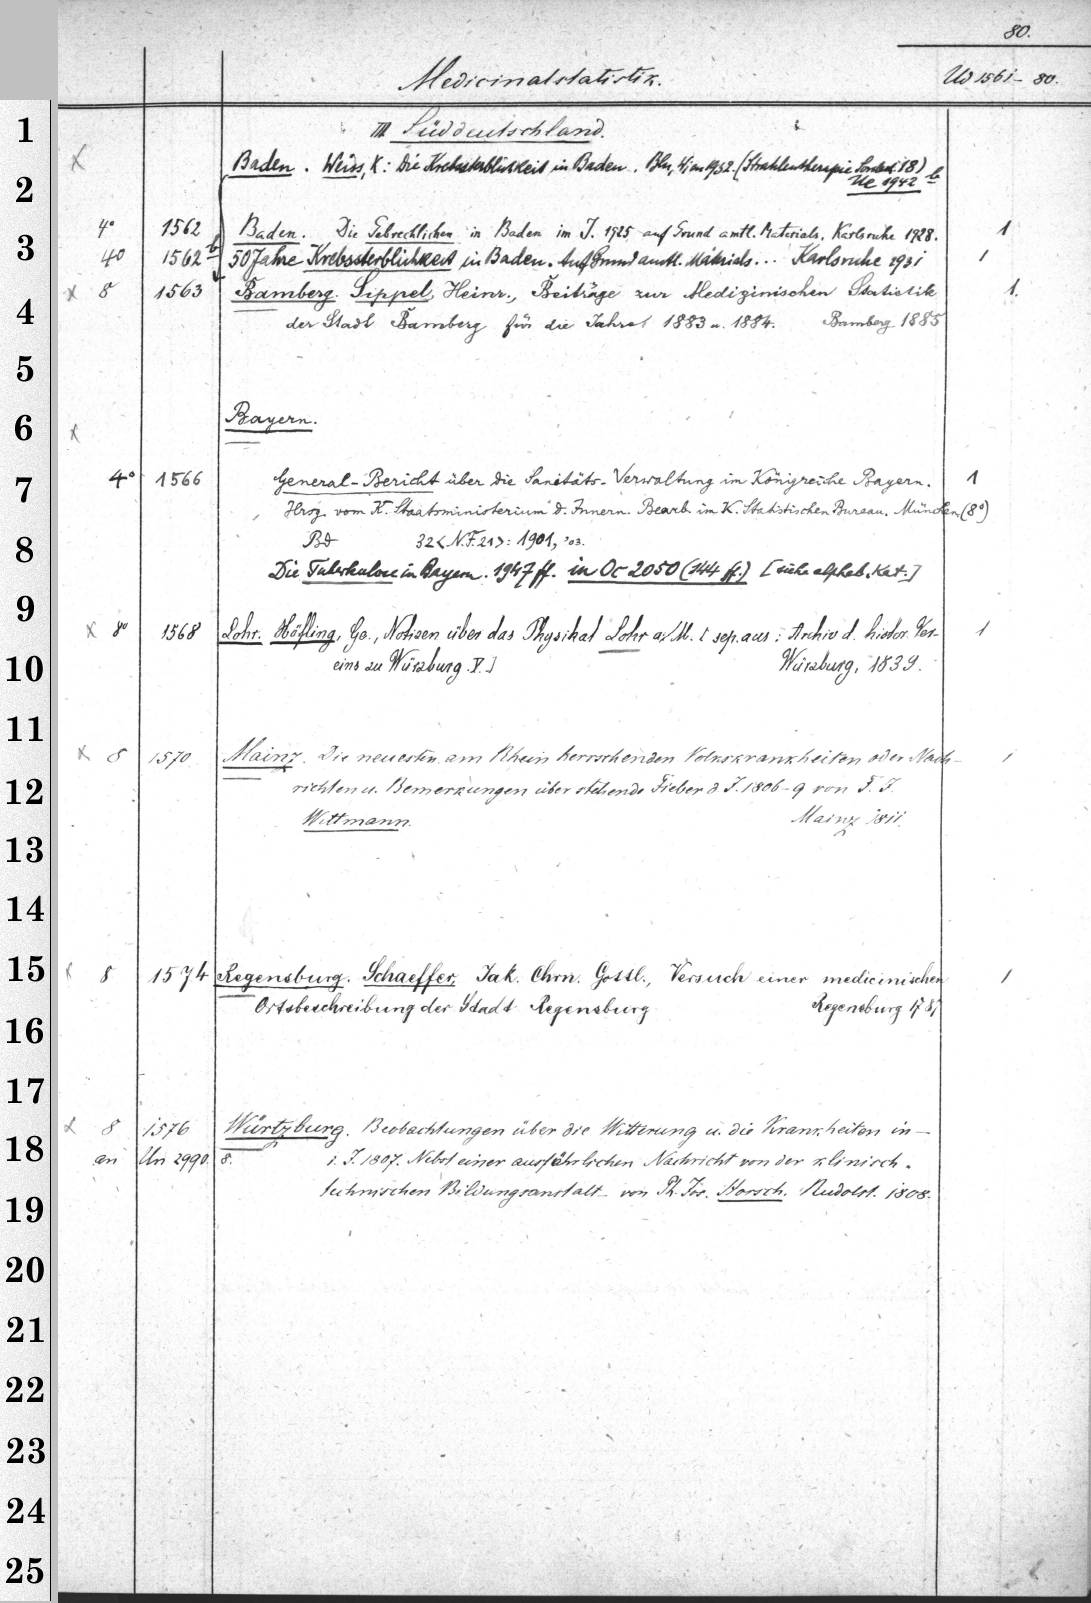 80.
Medicinalstatistik. Ud 1561-80.
1 III Süddeutschland.
2 Baden. Weiss, K: Die Krebssterblichkeit in Baden. Bln, Wien 1932. (Strahlentherapie Sonderbd. 18)
Ue 1942 b
4° 1562 Baden. Die Gebrechlichen in Baden im J. 1925 auf Grund amtl. Materials, Karlsruhe 1928. 1
3 4° 1562 b 50 Jahre Krebssterblichkeit in Baden. Auf Grund amtl. Materials... Karlsruhe 1931 1
x 8 1563 Bamberg. Sippel, Heinr., Beiträge zur Medizinischen Statistik 1.
4 der Stadt Bamberg für die Jahre 1883 u. 1884. Bamberg 1885
5
6 x Bayern.
7 4° 1566 General-Bericht über die Sanitäts-Verwaltung im Königreiche Bayern. 1
Hrsg. vom K. Staatsministerium d. Innern. Bearb. im K. Statistischen Bureau. München (8°)
8 Bd 32<N.F.21>: 1901, '03.
Die Tuberkulose in Bayern. 1947 ff. in Oc 2050 (144 ff.) [siehe alphab. Kat.]
9
x 8° 1568 Lohr. Höfling, Ge., Notizen über das Physikat Lohr a/M. [sep. aus: Archiv d. histor. Ver- 1
10 eins zu Würzburg. V.] Würzburg, 1839.
11
x 8 1570 Mainz. Die neuesten am Rhein herrschenden Volkskrankheiten oder Nach- 1
12 richten u. Bemerkungen über stehende Fieber d J. 1806-9 von F. J.
Wittmann. Mainz 1811.
13
14
15 x 8 1574 Regensburg. Schaeffer, Jak. Chrn. Gottl., Versuch einer medicinischen 1
Ortsbeschreibung der Stadt Regensburg Regensburg 1787
16
17
x 8 1576 Würtzburg. Beobachtungen über die Witterung u. die Krankheiten in-
18 an Un 2990. 8. i. J. 1807. Nebst einer ausführlichen Nachricht von der klinisch-
19 technischen Bildungsanstalt von Ph. Jos. Horsch. Rudolst. 1808.
20
21
22
23
24
25